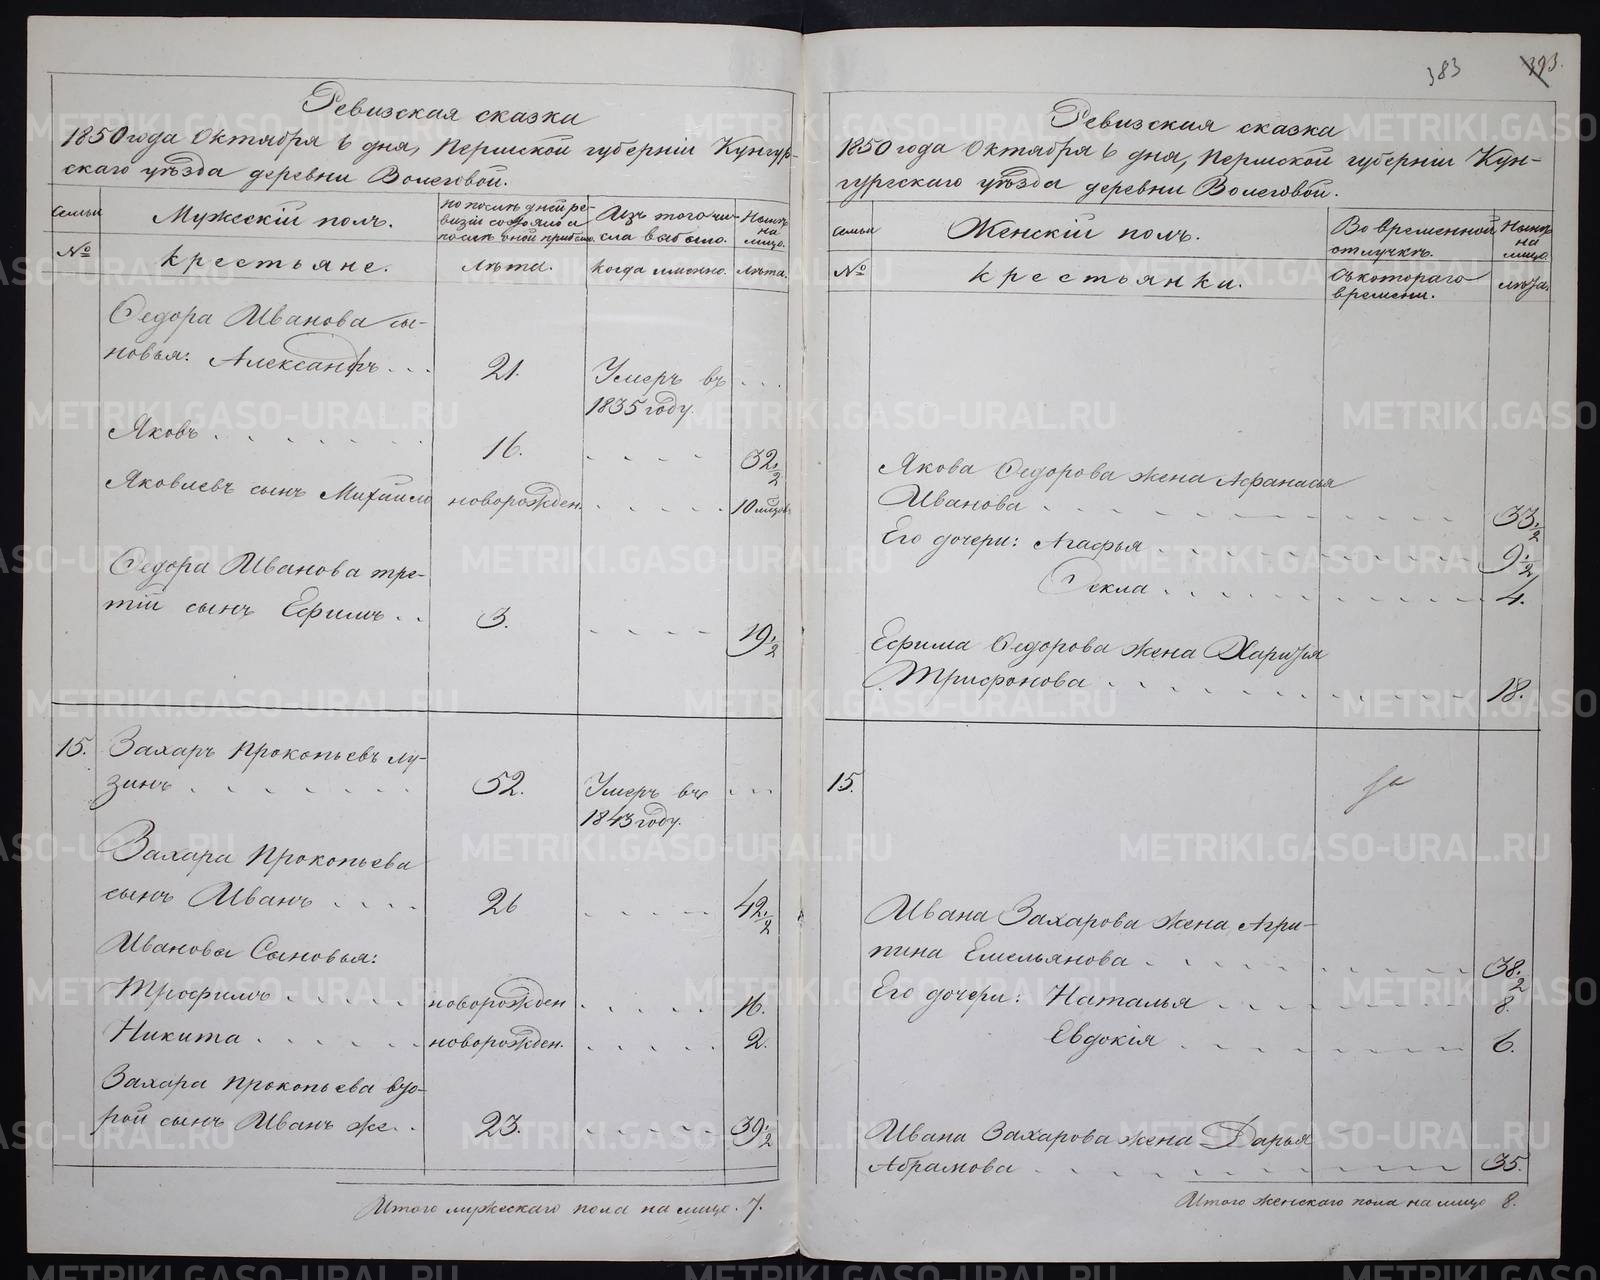 383 393.
Ревизская сказка
1850 года Октября 6 дня, Пермской губернiи Кунгур-
скаго уѣзда деревни Волеговой.
Семьи
Мужескiй полъ.
по послѣдней ре-
визiи состояло и
послѣ оной прибыло.
Изъ того чи-
сла выбыло.
Нынѣ
на
лицо.
№
крестьяне.
лѣта.
когда имянно.
лѣта.
Федора Иванова сы-
новья: Александръ . . . 21. Умеръ въ . . .
1835 году.
Яковъ . . . . . . . 16. . . . . 32 1/2
Яковлевъ сынъ Михайло новорожден. . . . . . 10 мѣсяц.
Федора Иванова тре-
тiй сынъ Ефимъ . . 3. . . . . 19 1/2
15. Захаръ Прокопьевъ Лу-
зинъ . . . . . . . 52. Умеръ въ . . .
1843 году.
Захара Прокопьева
сынъ Иванъ . . . . 26 . . . . 42 1/2
Ивановы Сыновья:
Трофимъ . . . . . новорожден . . . . . 16.
Никита . . . . . . новорожден. . . . . . 2.
Захара Прокопьева вто-
рой сынъ Иванъ же . . 23. . . . . . 39 1/2
Итого мужескаго пола на лицо . 7.
Ревизская сказка
1850 года Октября 6 дня, Пермской губернiи Кун-
гурскаго уѣзда деревни Волеговой.
Семьи
Женскiй полъ.
Во временной
отлучкѣ.
Нынѣ
на
лицо.
№
крестьянки.
Съ котораго
времени.
лѣта.
Якова Федорова жена Афанасья
Иванова . . . . . . . . . 33 1/2
Его дочери: Агафья . . . . . . . . 9 1/2
Фекла . . . . . . . . 4.
Ефима Федорова жена Харитья
Трифонова . . . . . . . . 18.
15.
Ивана Захарова жена Агри-
пина Емельянова . . . . . . . 38 1/2
Его дочери: Наталья . . . . . . . 8.
Евдокiя . . . . . . . 6.
Ивана Захарова жена Дарья
Абрамова . . . . . . . . . 35.
Итого женскаго пола на лицо 8.
METRIKI.GASO-URAL.RU